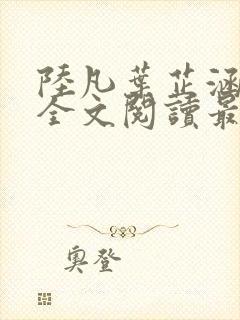 陸凡葉芷涵
全文閱讀最
奧登